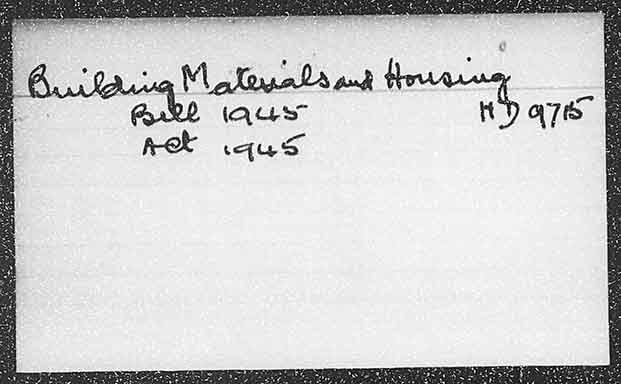 Building Materials and Housing
Bill 1945 HD 9715
Act 1945